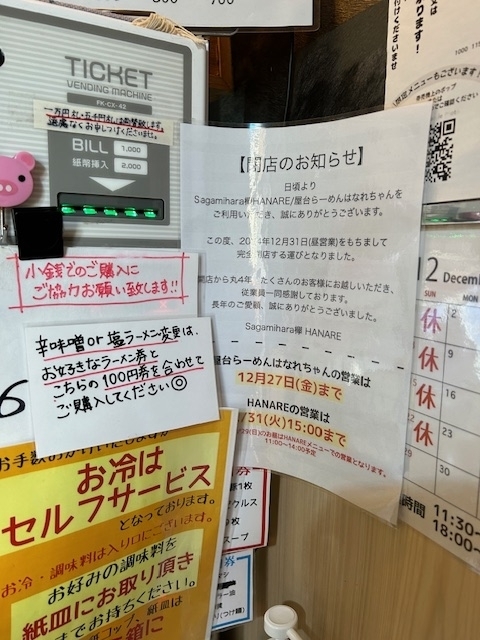 TICKET
VENDING MACHINE
FK-CX-42
一万円札・五千円札は両替致します
遠慮なくお申しつけくださいませ。
BILL
紙幣挿入
1,000
2,000
小銭でのご購入に
ご協力お願い致します!!
辛味噌or塩ラーメン変更は、
お好きなラーメン券と
こちらの100円券を合わせて
ご購入してください◎
お冷は
セルフサービス
となっております。
お冷・調味料は入り口にございます。
お好みの調味料を
紙皿にお取り頂き
までお待ちください。
コップ、紙皿は
箱に
【閉店のお知らせ】
日頃より
Sagamihara欅HANARE/屋台らーめんはなれちゃんを
ご利用いただき、誠にありがとうございます。
この度、2024年12月31日(昼営業)をもちまして
完全閉店する運びとなりました。
開店から丸4年、たくさんのお客様にお越しいただき、
従業員一同感謝しております。
長年のご愛顧、誠にありがとうございました。
Sagamihara欅 HANARE
屋台らーめんはなれちゃんの営業は
12月27日(金)まで
HANAREの営業は
31(火)15:00まで
HANAREメニューでの営業となります。
11:00~14:00予定
メニューもございます!
2 Decem
SUN
MON
休
2
休
9
休
16
休
23
30
時間
11:30~
18:00~